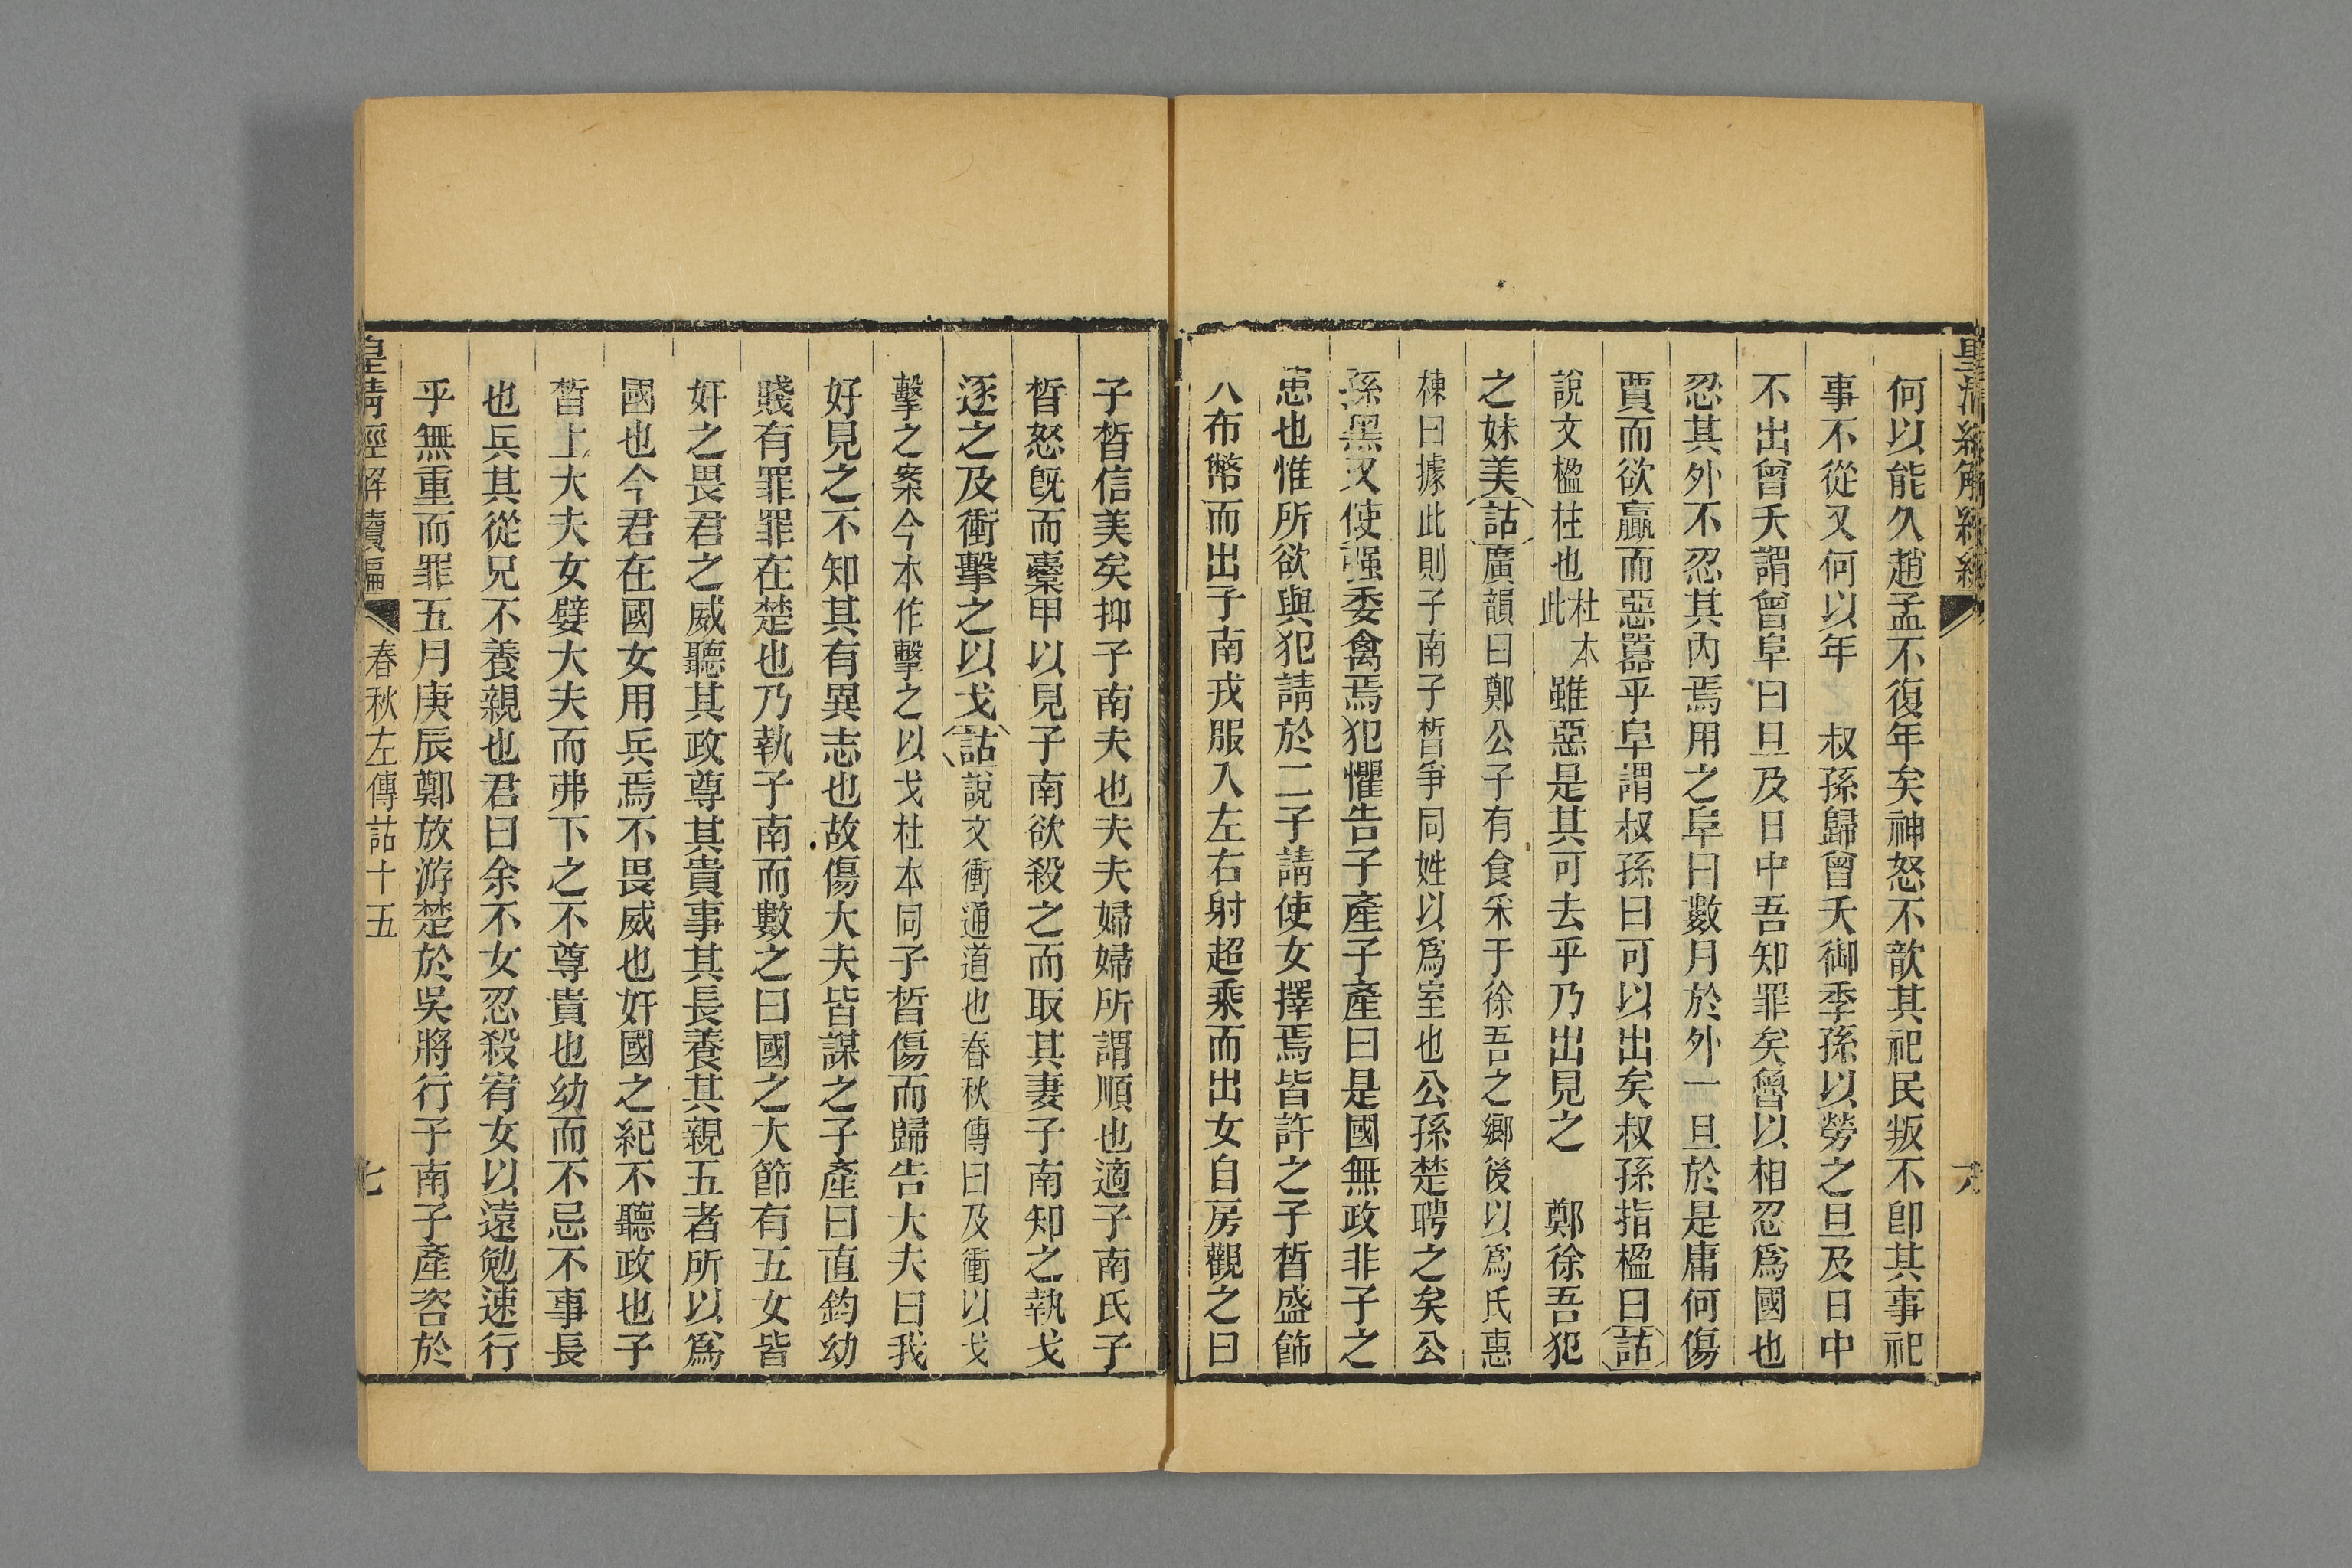 何以能久趙孟不復年矣神怒不歆其祀民叛不卽其事祀
事不從又何以年　叔孫歸曾夭御季孫以勞之旦及日中
不出曾夭謂曾阜曰旦及日中吾知罪矣魯以相忍爲國也
忍其外不忍其內焉用之阜曰數月於外一旦於是庸何傷
賈而欲贏而惡囂乎阜謂叔孫曰可以出矣叔孫指楹曰詁
說文楹柱也杜本此雖惡是其可去乎乃出見之　鄭徐吾犯
之妹美詁廣韻曰鄭公子有食采于徐吾之鄉後以爲氏惠
棟曰據此則子南子晳爭同姓以爲室也公孫楚聘之矣公
孫黑又使强委禽焉犯懼告子產子產曰是國無政非子之
患也惟所欲與犯請於二子請使女擇焉皆許之子晳盛飾
入布幣而出子南戎服入左右射超乘而出女自房觀之曰
子晳信美矣抑子南夫也夫夫婦婦所謂順也適子南氏子
晳怒旣而櫜甲以見子南欲殺之而取其妻子南知之執戈
逐之及衝擊之以戈詁說文衝通道也春秋傳曰及衝以戈
擊之案今本作擊之以戈杜本同子晳傷而歸告大夫曰我
好見之不知其有異志也故傷大夫皆謀之子產曰直鈞幼
賤有罪罪在楚也乃執子南而數之曰國之大節有五女皆
奸之畏君之威聽其政尊其貴事其長養其親五者所以爲
國也今君在國女用兵焉不畏威也奸國之紀不聽政也子
晳上大夫女嬖大夫而弗下之不尊貴也幼而不忌不事長
也兵其從兄不養親也君曰余不女忍殺宥女以遠勉速行
乎無重而罪五月庚辰鄭放游楚於吳將行子南子產咨於
皇淸經解續編　春秋左傳詁十五　七